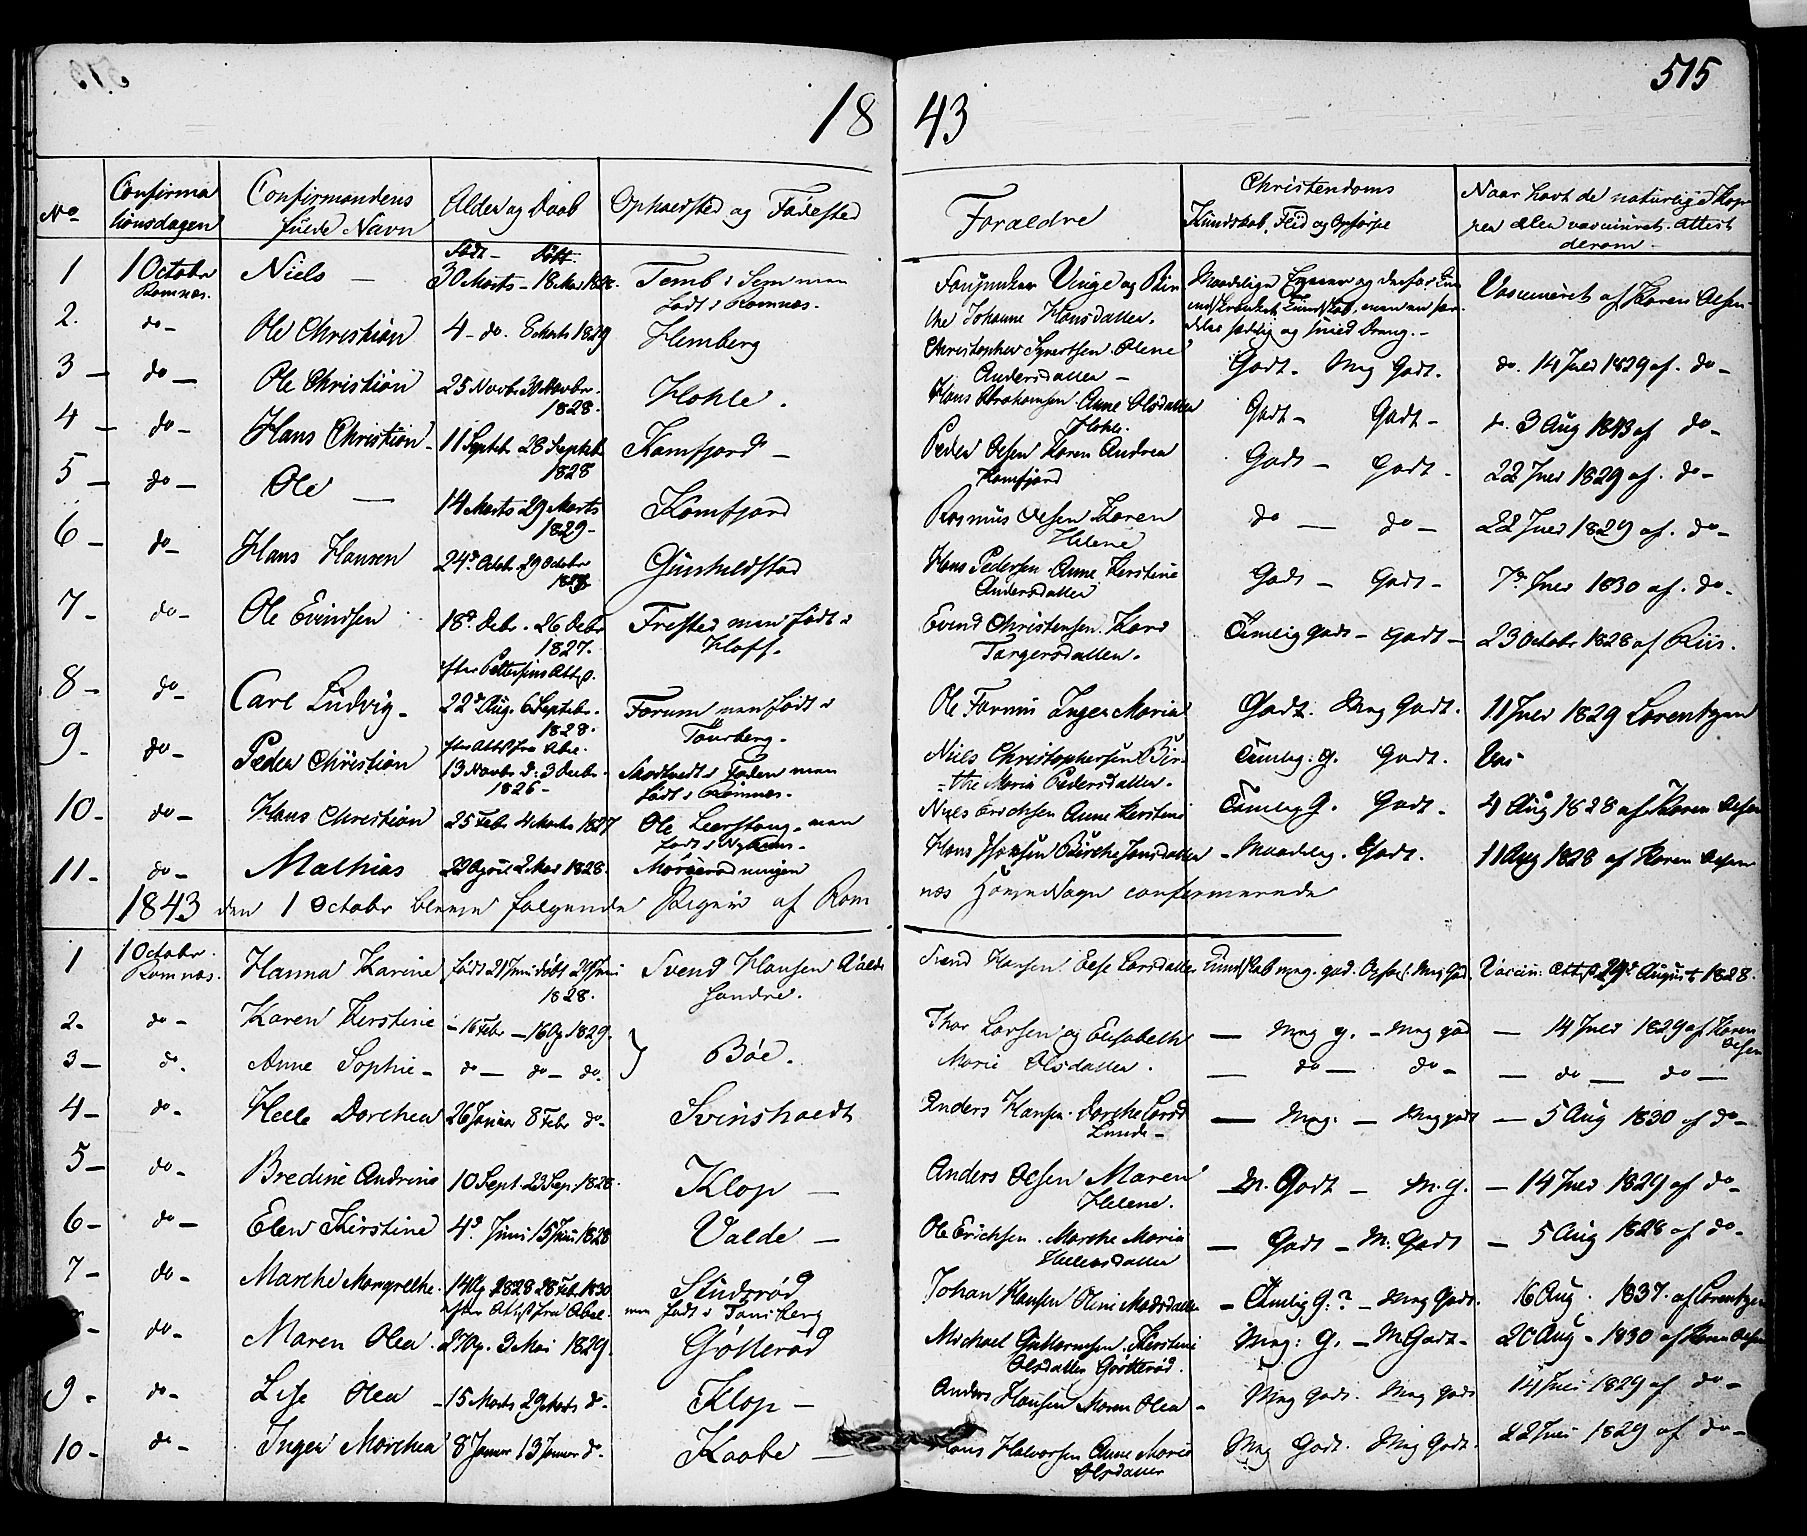 515
18 43
No
Confirma
tionsdagen
Confirmandens
fulde Navn
Alder og Daab
Opholdsted og Fødested
Forældre
Christendoms
Kundskab, Flid og Opførsel
Naar havt de naturlige Kop
per eller vaccineret. Attest
derom -
Født - Døbt
1 1 October Niels - 30 Marts - 18 Mai Temb i Sem men
Romnæs. født i Romnæs.
og Bir
the Johanne Hansdatter.
Maadelige og derfor
Vaccineret af Karen Olsen
2. do - Ole Christian 4 - do. 8 Marts 1829 Hemberg
Christopher Syvertsen Olene
Andersdatter - Godt. Meg Godt. do. 14 Juli 1829 af. do -
3 - do - Ole Christian 25 Novbr 30 Novbr.
1828. Hohle.
Hans Abrahamsen Anne Olsdatter
Hohle. Godt - Godt - do. 3 Aug 1843 af do -
4 - do - Hans Christian - 11 Septbr 28 Septbr
1828 Kamfjord -
Peder Olsen Karen Andrea
Kamfjord Godt - Godt - 22 Juli 1829 af. do -
5 - do - Ole - 14 Marts 29 Marts
1829 - Kamfjord
Rasmus Olsen Karen
Helene do - do - 22 Juli 1829 af. do -
6 - do - Hans Hansen 24de Octb. 29 Octobr
Gunhildstad
Hans Pedersen Anne Kerstine
Andersdatter Godt - Godt - 7de Juli 1830 af. do -
7 - do - Ole Evindsen 18de Debr. 26 Debr
1827. Fresti men født i
Hoff.
Evend Christensen. Kari
Targersdatter. Temlig godt - Godt - 23 Octobr 1828 af Riis.
8 - do - Carl Ludvig - 22de Aug. 6 Septebr.
1828. Farum men født i
Tønsberg.
Ole Farum Inger Maria Godt. Meg Godt. 11 Juli 1829 Lorentzen
9 - do - Peder Christian
13 Novbr d: 3 Decbr.
1826 - men
født i Romnæs.
Niels Christophersen Bir-
=the Maria Pedersdatter. Temlig: G. Godt.
10 - do - Hans Christian 25 Febr 4 Marts 1827 Ole Leerstang - men
født i
Niels Erichsen Anne Kerstine Temlig G. Godt. 4 Aug 1828 af Karen Olsen
11 - do - Mathias 22 April 2 Mai 1828.
Hans - Maadelig. Godt. 11 Aug 1828 af Karen Olsen
1843 den 1 October bleven følgende Piger af Ram
næs Sogn confirmerede
1 1 Octobr.
Romnæs. Hanna Karine født 21 Juni døbt 29 Juni
1828. Svend Hansen Valde
søndre.
Svend Hansen Else Larsdatter Kundskab meg. god. Opførs: Meg God Vaccin: Attest 29de August 1828.
2 - do - Karen Kerstine - 16 Febr - 16 Ap 1829.
3 - do. Anne Sophie - do - do - do. } Bøe.
Thor Larsen og Elisabeth
Marie Olsdatter.
- Meg g. - Meg god - 14 Juli 1829 af Karen
Olsen
- do - do - - do - do -
4 - do - Helle Dorthea 26 Januar 8 Febr do - Svinsholdt
Anders Hansen. Dorthe Larsd
Lunde - - Meg. - Meg godt - 5 Aug 1830 af do -
5 - do - Bredine Andrine 10 Sept. 23 Sep. 1828. Klop -
Anders Olsen Maren
Helene. - M. Godt - M. G. - 14 Juli 1829 af do -
6 - do - Elen Kirstine 4de Juni 15 Juni 1828 Valde -
Ole Erichsen. Marthe Maria
- Godt - M. Godt - 5 Aug 1828 af do -
7 - do - Marthe Margrethe. 14 Ap 1828 28 Feb. 1830
efter Attest fra Abel. Studsrød
men født i Tønsberg
Johan Hansen Oline Madsdatter - Temlig G: ? - Meg Godt. 16 Aug. 1837. af Lorentzen
do - Maren Olea. 27 Ap. 3 Mai 1829. Gøtterød
Michael Guttormsen, Kerstine
Olsdatter Gøtterød. Meg: G. - M. Godt - 20 Aug - 1830 af Karen Olsen
9 - do - Lise Olea - 15 Marts 29 Marts do - Klop -
Anders Hansen Maren Olea - Meg Godt. Meg Godt 14 Juli 1829 af do -
10 - do - Inger Marthea 8 Januar 13 Januar do - Kaabe -
Hans Halvorsen Anne Marie
Olsdatter Meg Godt. Meg Godt. 22 Juli 1829 af do -